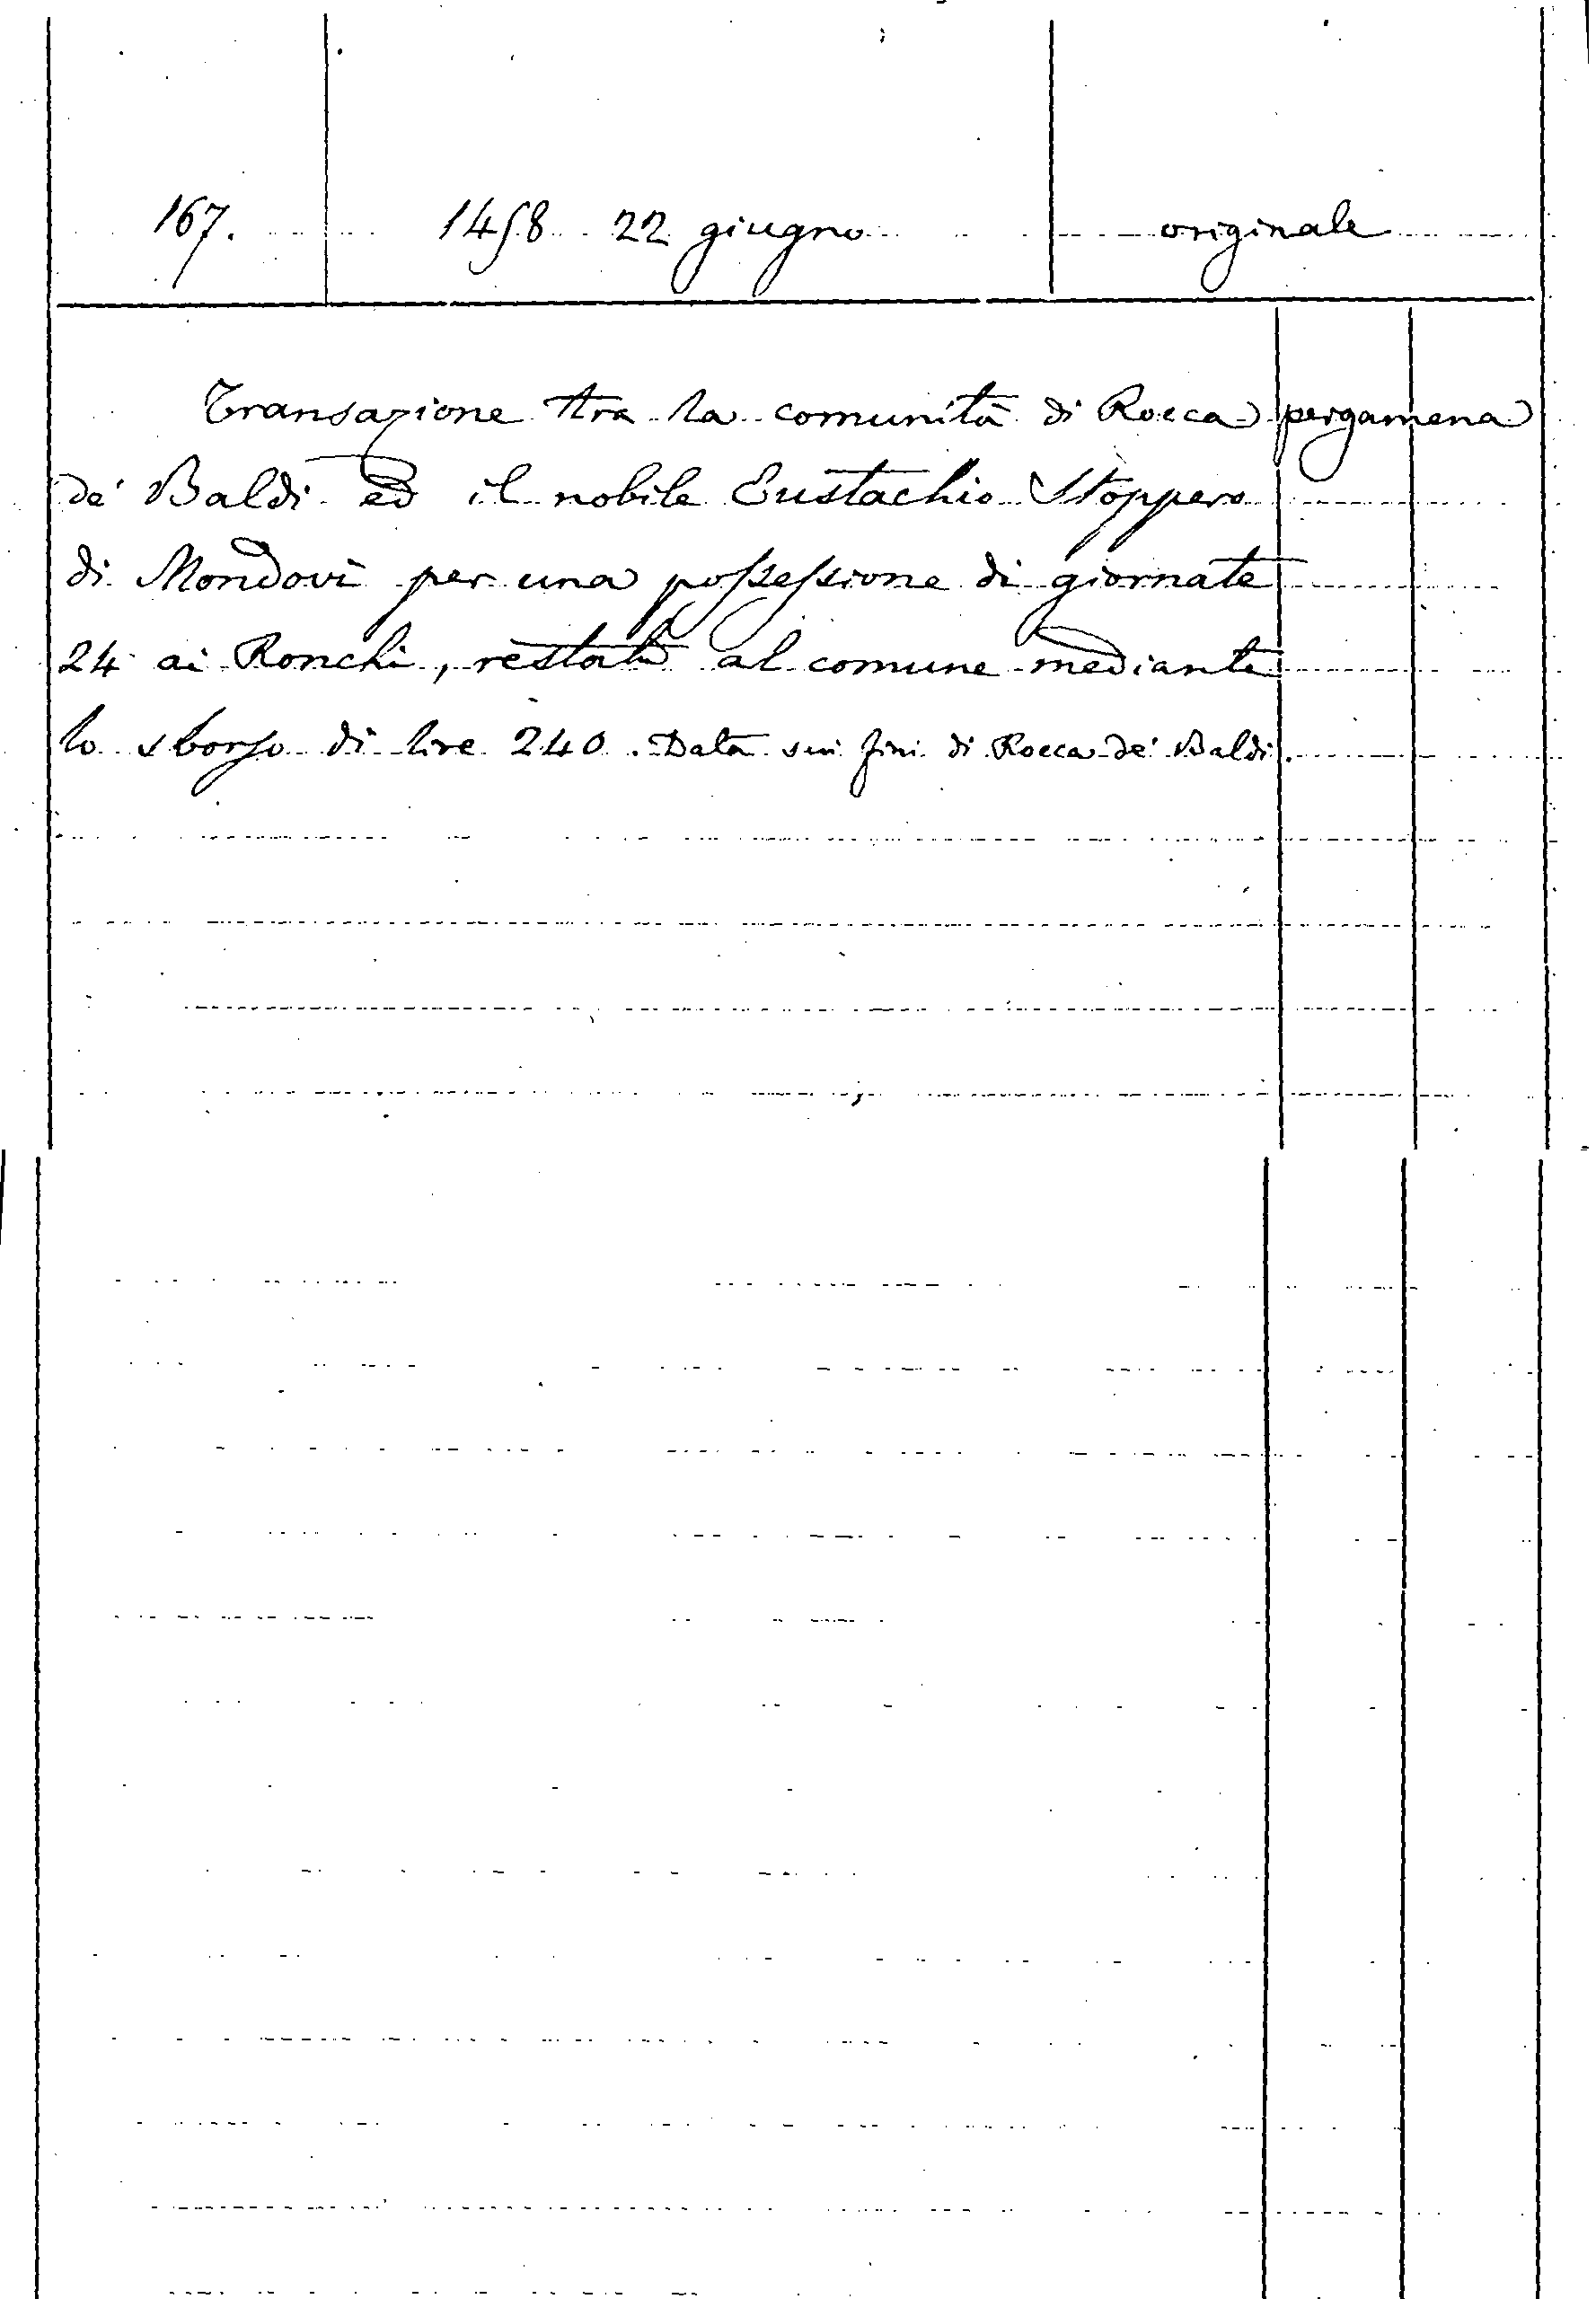 167. 1458 22 giugno originale
Transazione tra la comunità di Rocca pergamena
de' Baldi ed il nobile Eustachio Stoppero
di Mondovì per una possessione di giornate
24 ai Ronchi, restata al comune mediante
lo sborso di lire 240. Data sui fini di Rocca de' Baldi.